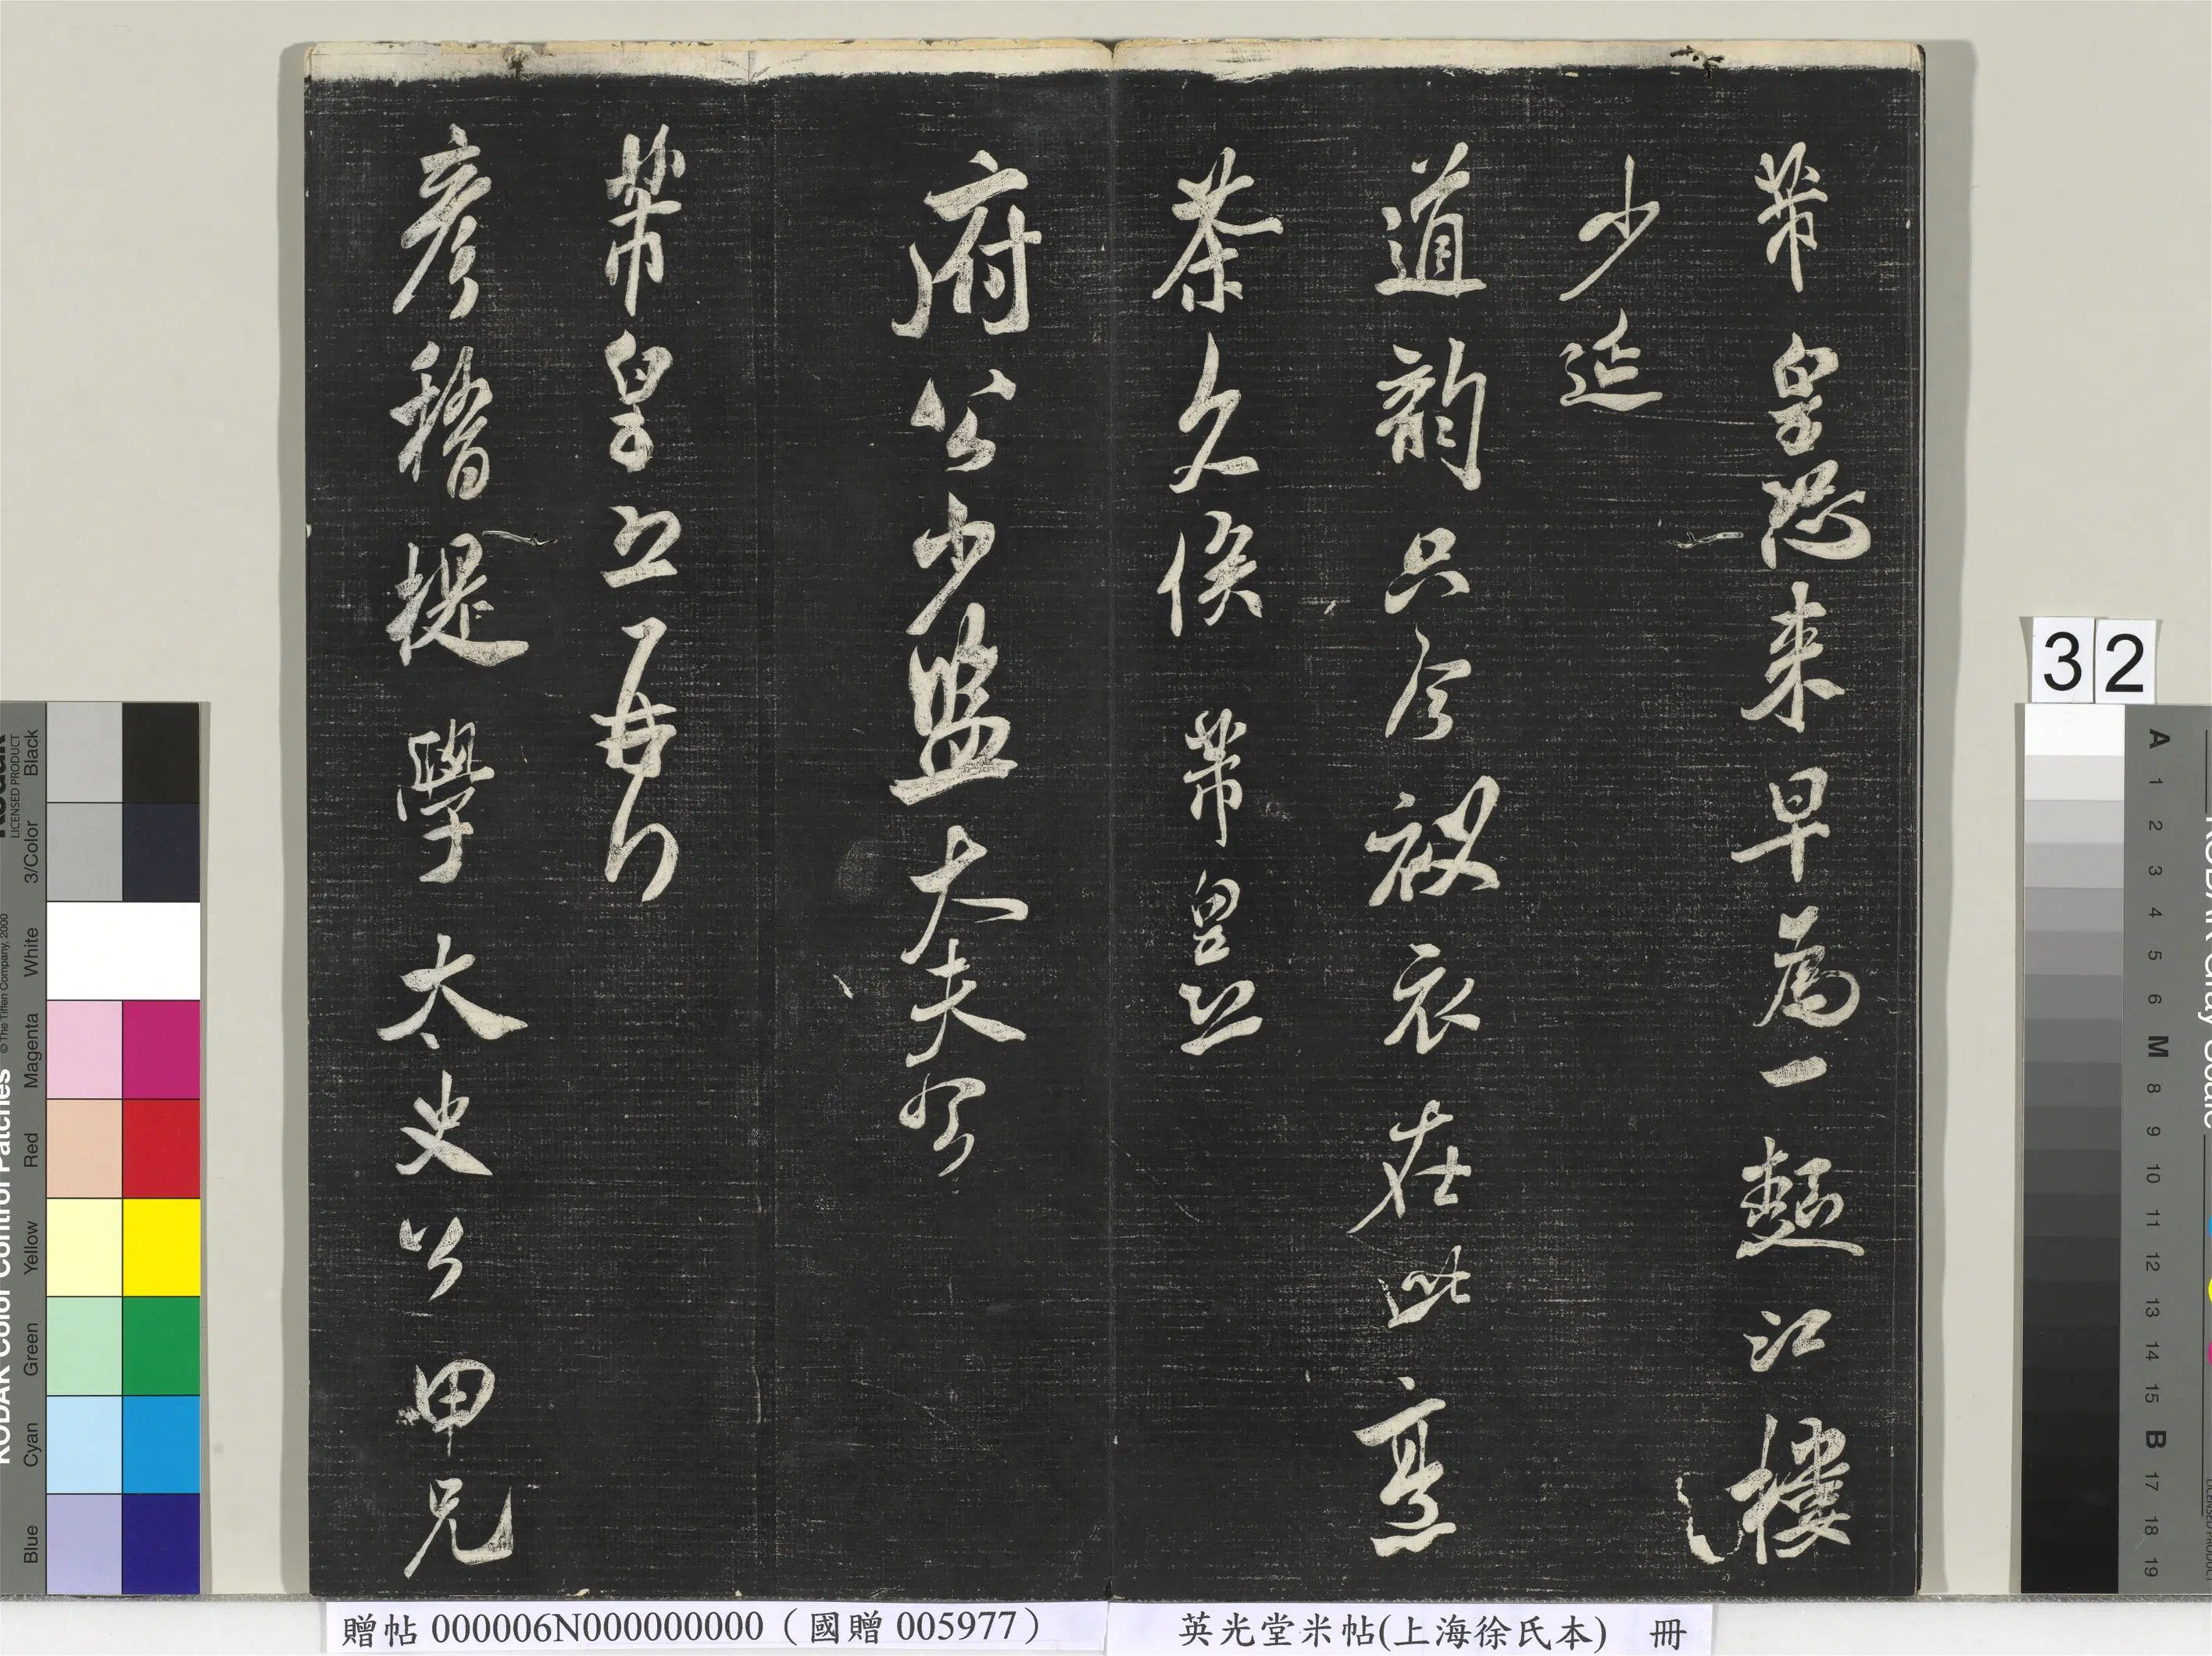 芾皇恐来早為一麵江樓
少延
道韵只今被衣在此烹
茶久俟 芾皇恐
府公少監大夫
芾皇恐再拜
彥稽提學太史公甲兄
32
英光堂米帖(上海徐氏本) 冊
贈帖 000006N000000000（國贈 005977）
KODAK Color Control Patches
© The Tiffen Company, 2000
LICENSED PRODUCT
Blue
Cyan
Green
Yellow
Red
Magenta
White
3/Color
Black
A 1 2 3 4 5 6 M 8 9 10 11 12 13 14 15 B 17 18 19